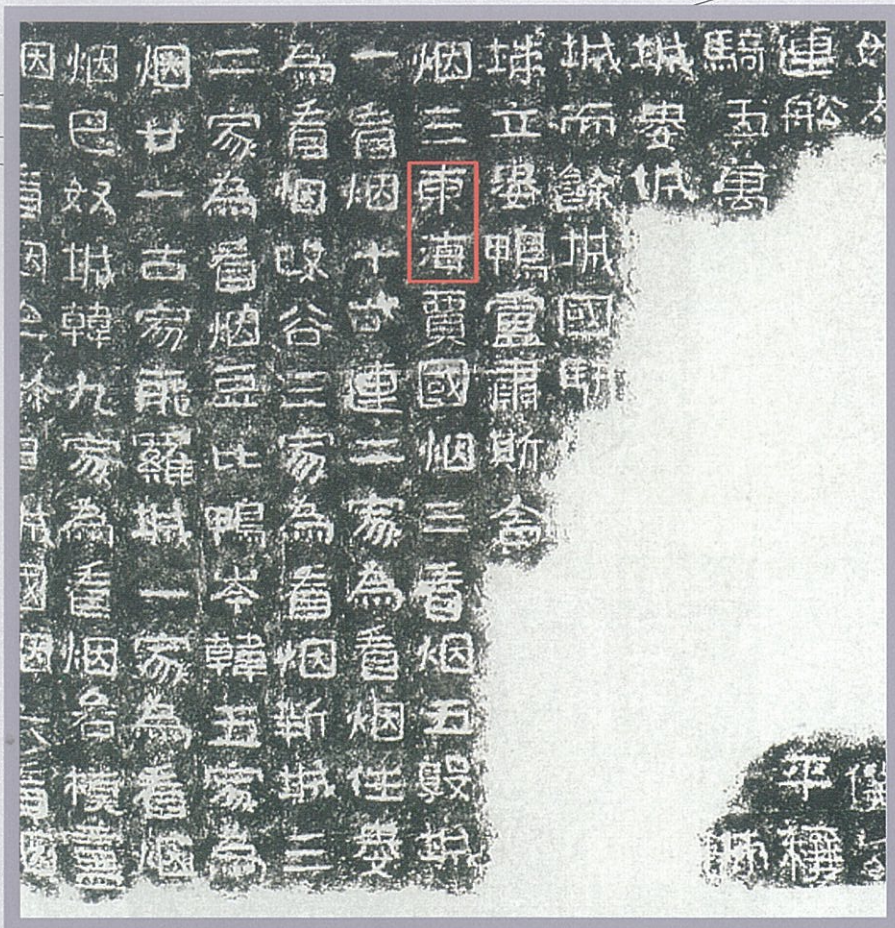 連船 平穰
騎五萬 城
城婁城
城而餘城國
立婁鴨盧肅斯舍
烟三東海賈國烟三看烟五敦城
一看烟十 連二家為看烟住婁
為看烟改谷三家為看烟新城三
二家為看烟豆比鴨岑韓五家為
烟廿一古家龍羅城一家為看烟
烟巴奴城韓九家為看烟各模盧